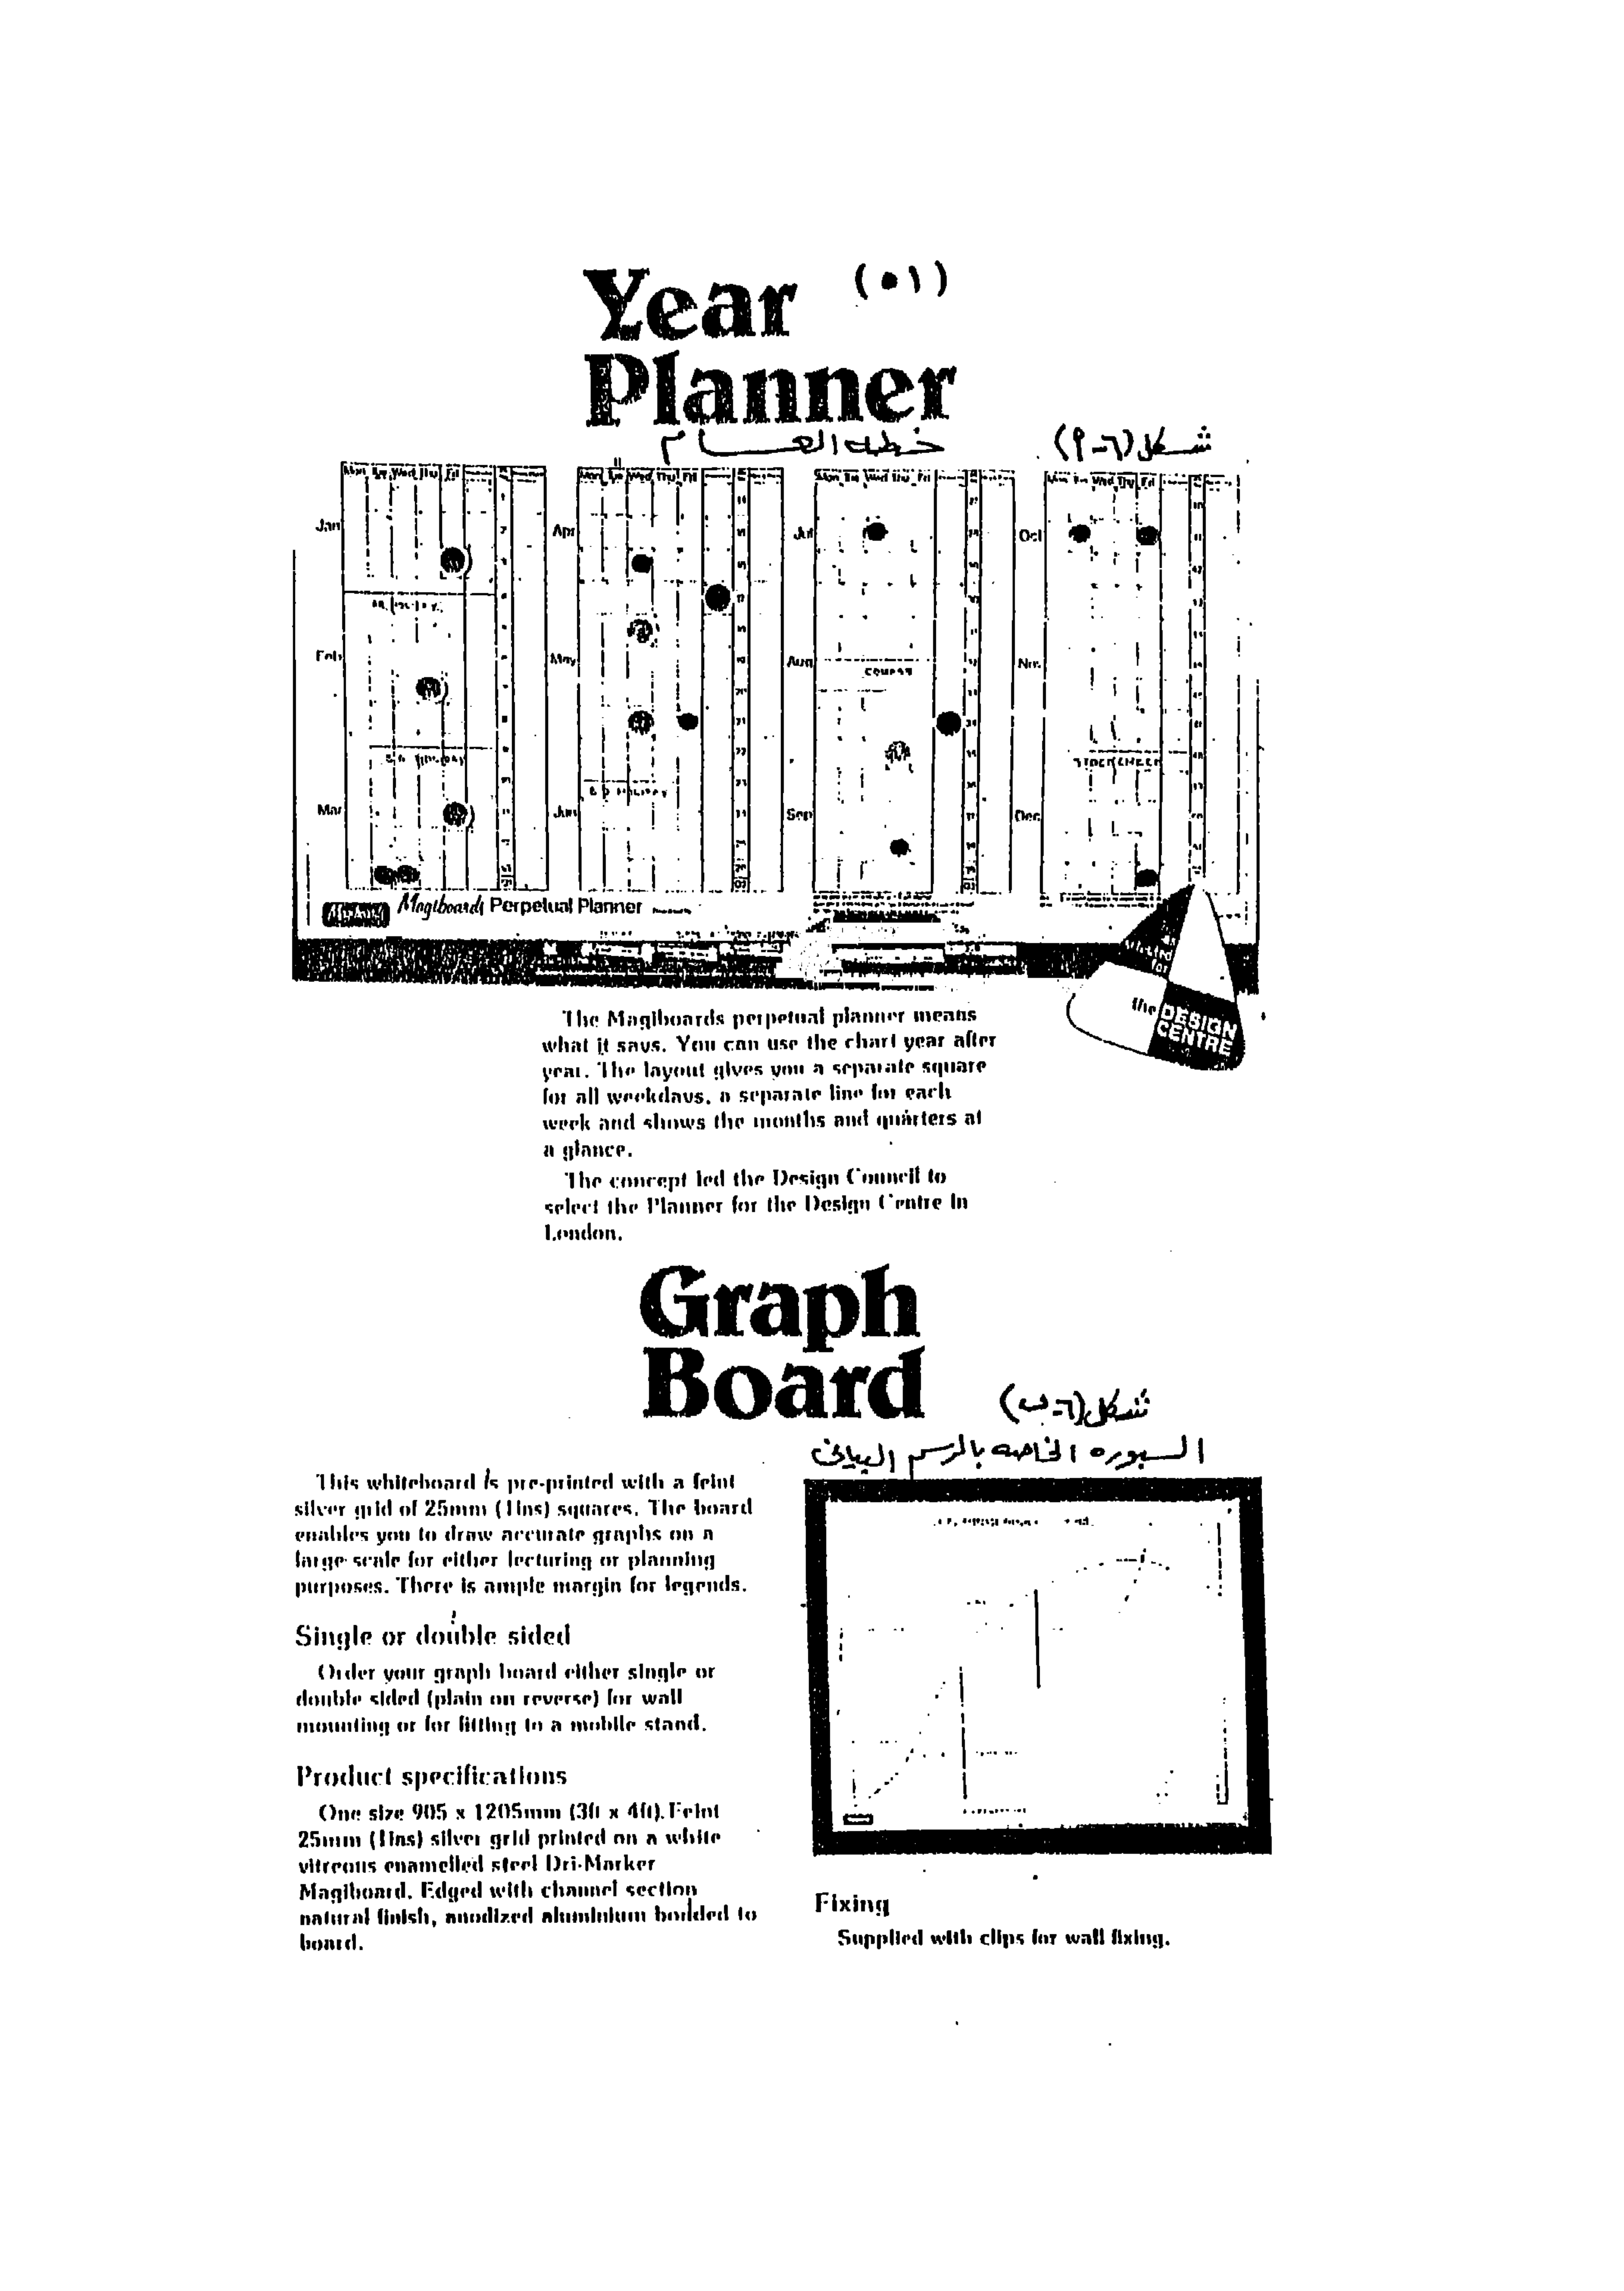 Year
(٥١)
Planner
خطة العام
شكل (٦-٩)
Mon Tue Wed Thu Fri
Mon Tue Wed Thu Fri
Mon Tue Wed Thu Fri
Mon Tue Wed Thu Fri
Jan
Apr
Jul
Oct
Feb
May
Aug
Nov
COURSE
STOCK CHECK
Mar
Jun
Sep
Dec
Magiboards Perpetual Planner
the DESIGN
CENTRE
The Magiboards perpetual planner means
what it says. You can use the chart year after
year. The layout gives you a separate square
for all weekdays, a separate line for each
week and shows the months and quarters at
a glance.
The concept led the Design Council to
select the Planner for the Design Centre in
London.
Graph
Board
شكل (٦-ب)
السبوره الخاصه بالرسم البيانى
This whiteboard is pre-printed with a feint
silver grid of 25mm (1ins) squares. The board
enables you to draw accurate graphs on a
large scale for either lecturing or planning
purposes. There is ample margin for legends.
Single or double sided
Order your graph board either single or
double sided (plain on reverse) for wall
mounting or for fitting to a mobile stand.
Product specifications
One size 905 x 1205mm (3ft x 4ft). Feint
25mm (1ins) silver grid printed on a white
vitreous enamelled steel Dri-Marker
Magiboard. Edged with channel section
natural finish, anodized aluminium bonded to
board.
Fixing
Supplied with clips for wall fixing.